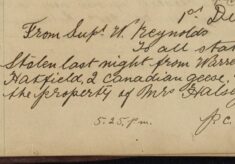 1st De
From Supt W. Reynolds
To all stat
Stolen last night from Warre
Hatfield, 2 Canadian geese,
the property of Mrs Halsey
5.25. p.m.
P.C.